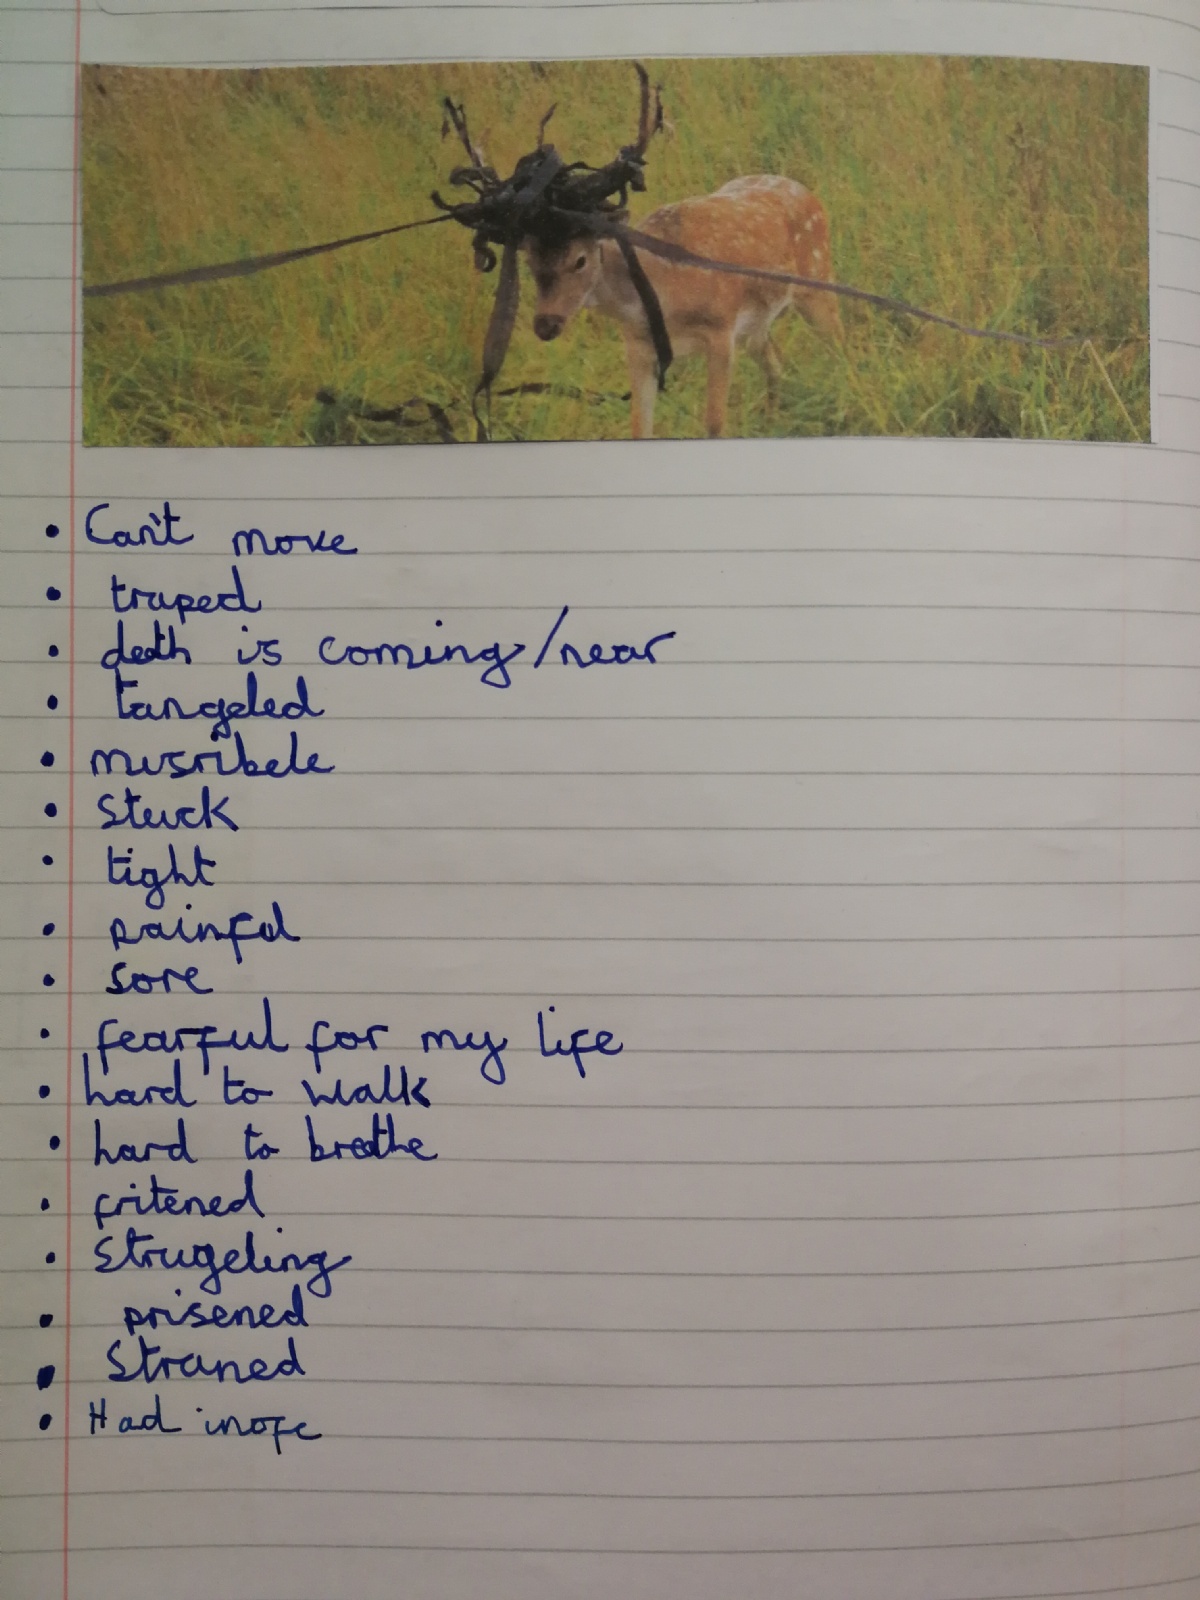 • Can't move
• traped
• death is coming/near
• tangeled
• misribele
• stuck
• tight
• painful
• sore
• fearful for my life
• hard to walk
• hard to breathe
• fritened
• strugeling
• prisened
• straned
• Had inofe